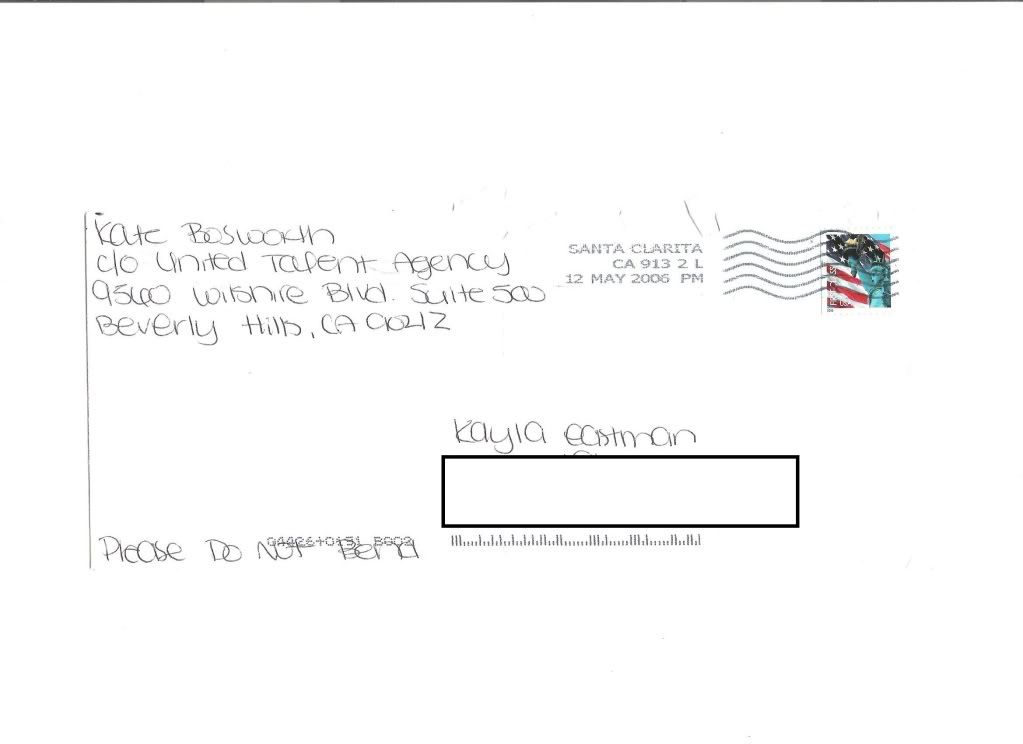 Kate Bosworth
c/o United Talent Agency
9560 Wilshire Blvd. Suite 500
Beverly Hills, CA 90212
SANTA CLARITA
CA 913 2 L
12 MAY 2006 PM
Kayla Eastman
Please Do Not Bend